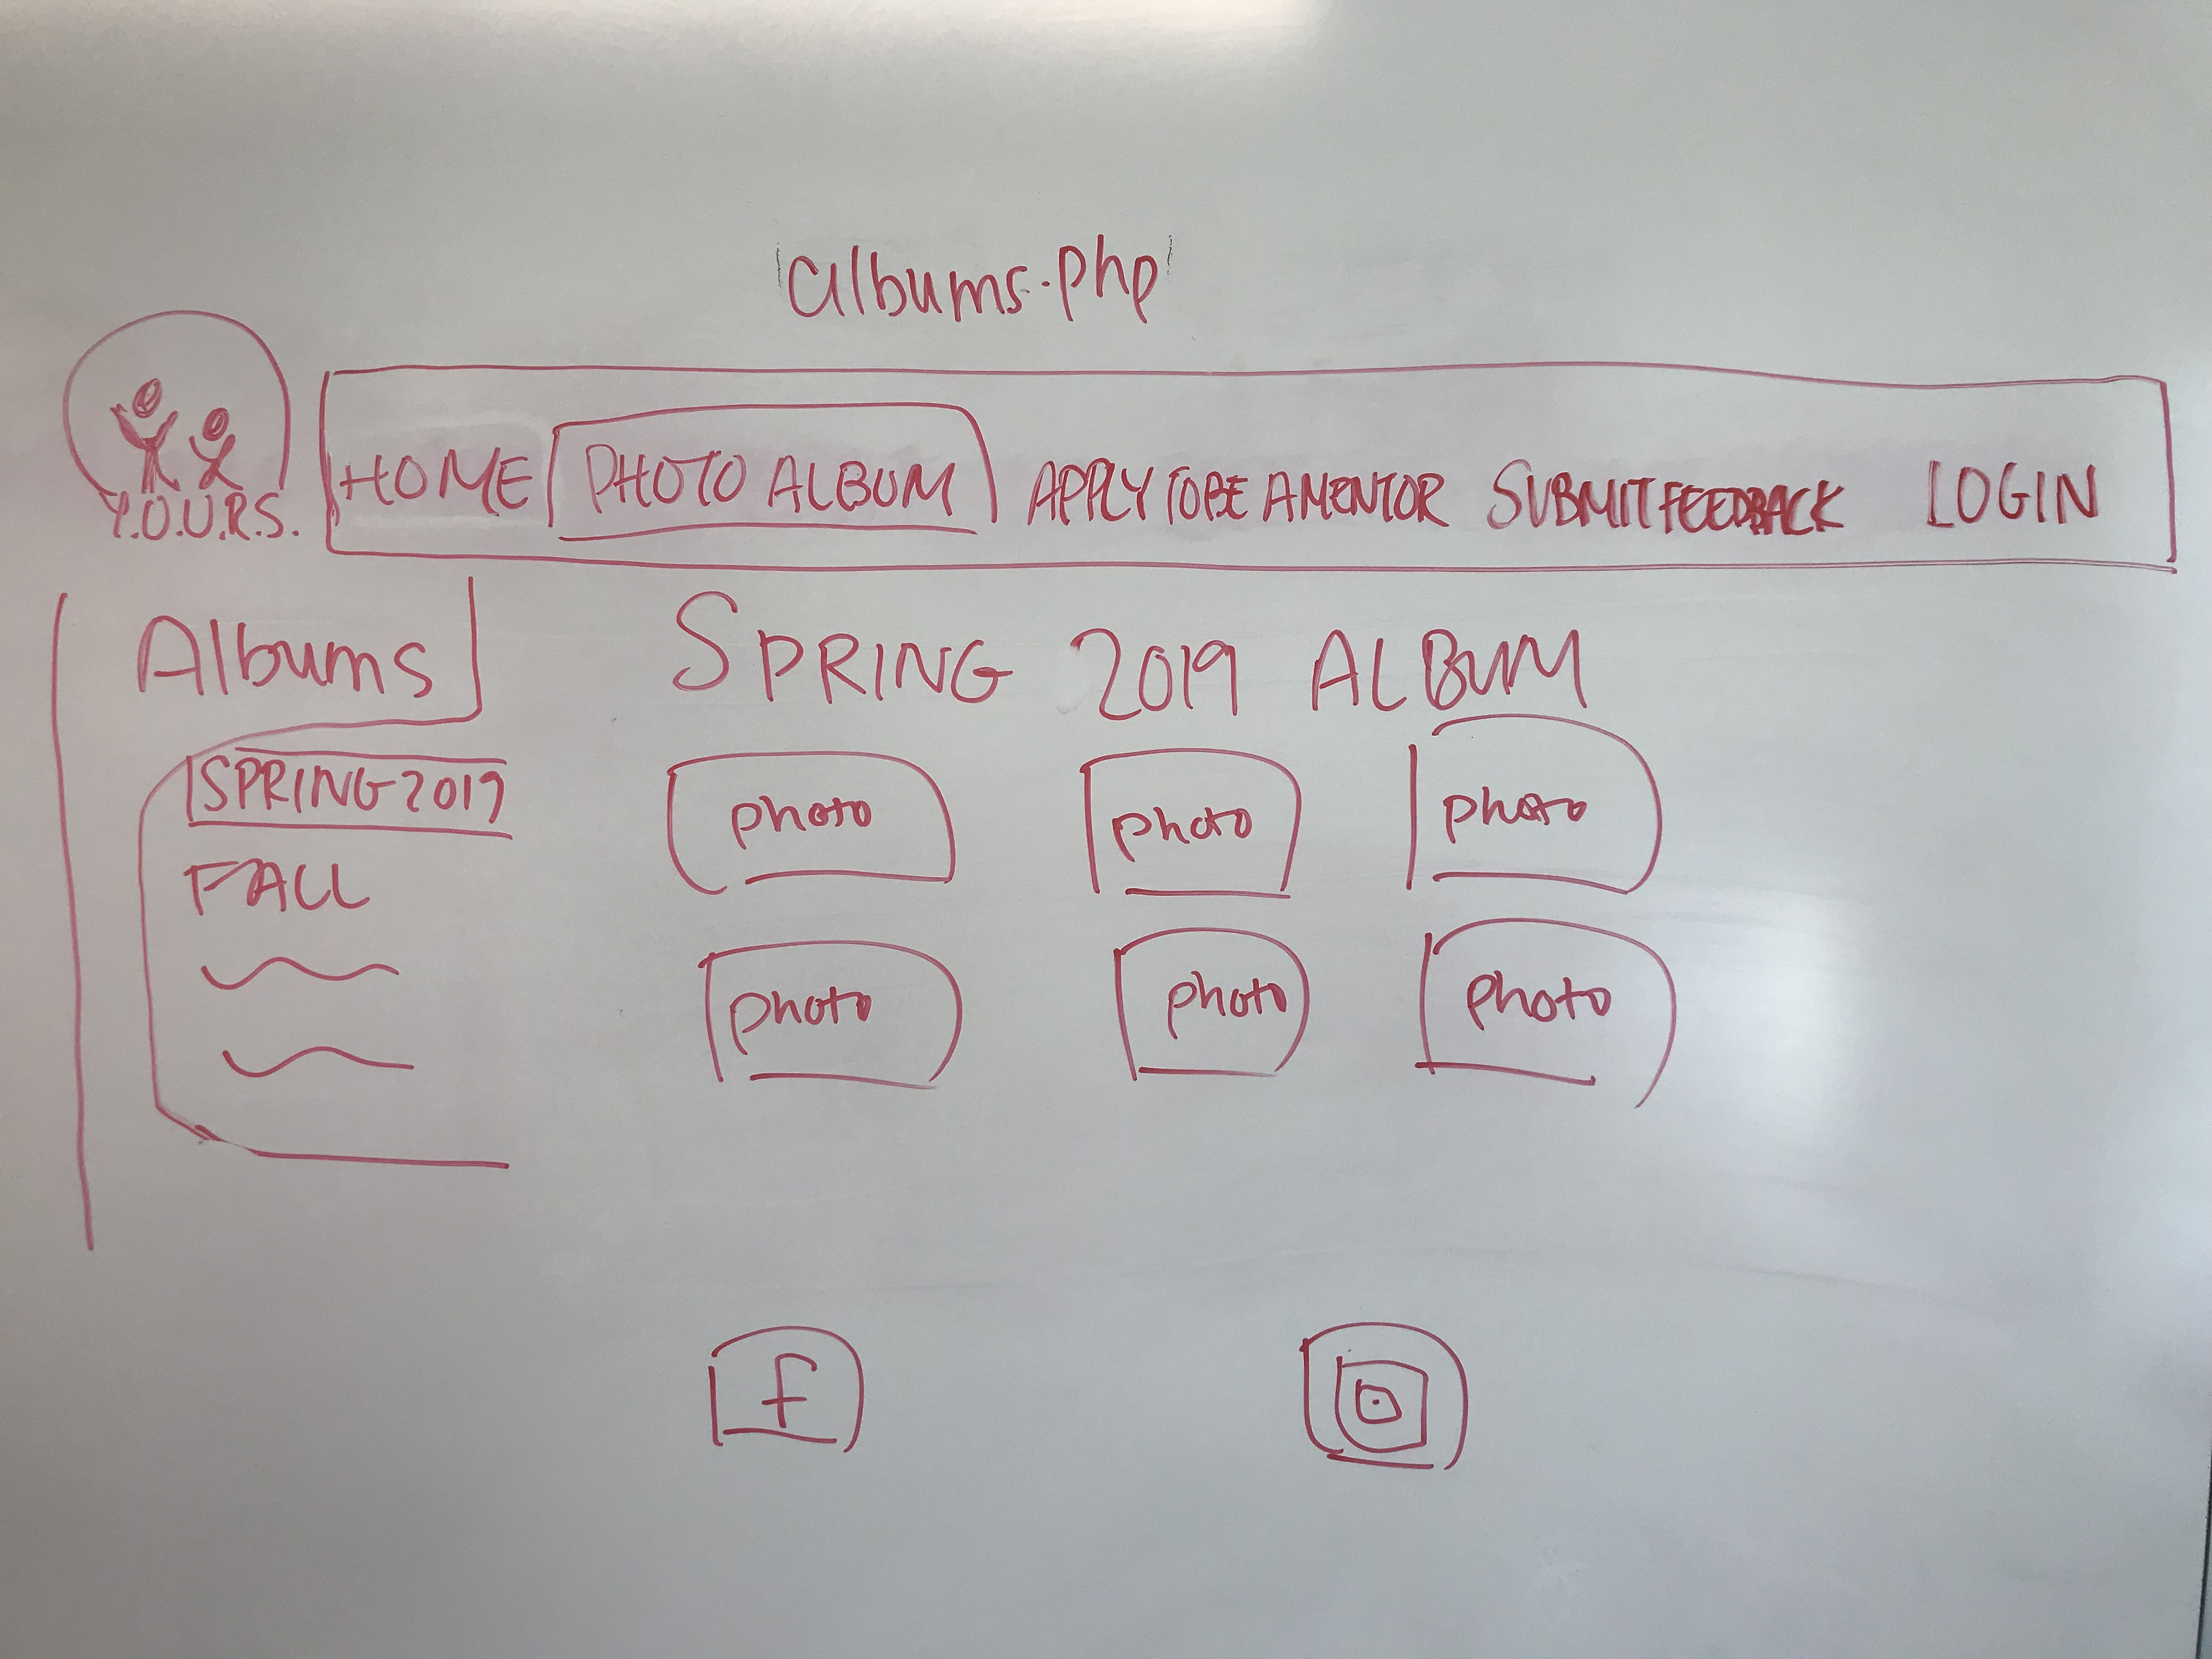 albums.php
Y.O.U.R.S.
HOME PHOTO ALBUM APPLY TO BE A MENTOR SUBMIT FEEDBACK LOGIN
Albums
SPRING 2019
FALL
SPRING 2019 ALBUM
photo photo photo
photo photo photo
f